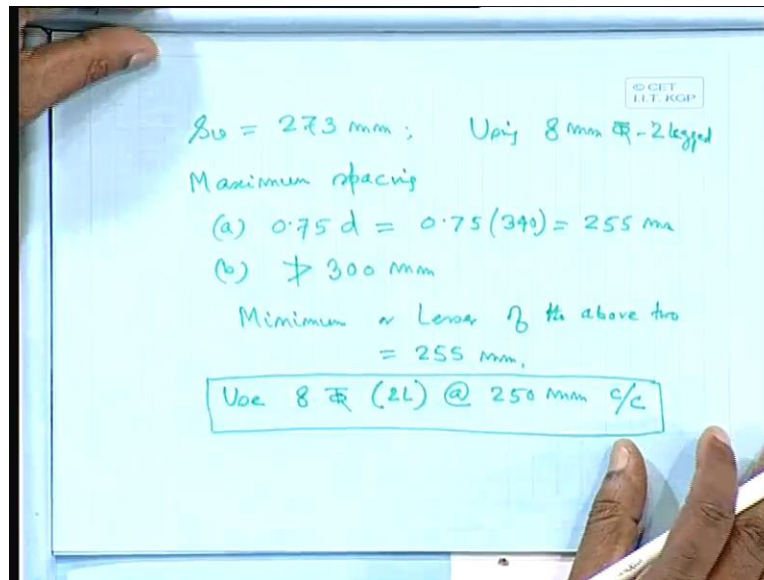 © CET
I.I.T. KGP
Sv = 273 mm; Using 8 mm Ꞩ - 2 legged
Maximum spacing
(a) 0.75 d = 0.75 (340) = 255 mm
(b) ≯ 300 mm
Minimum or Lesser of the above two
= 255 mm.
Use 8 (2L) @ 250 mm c/c